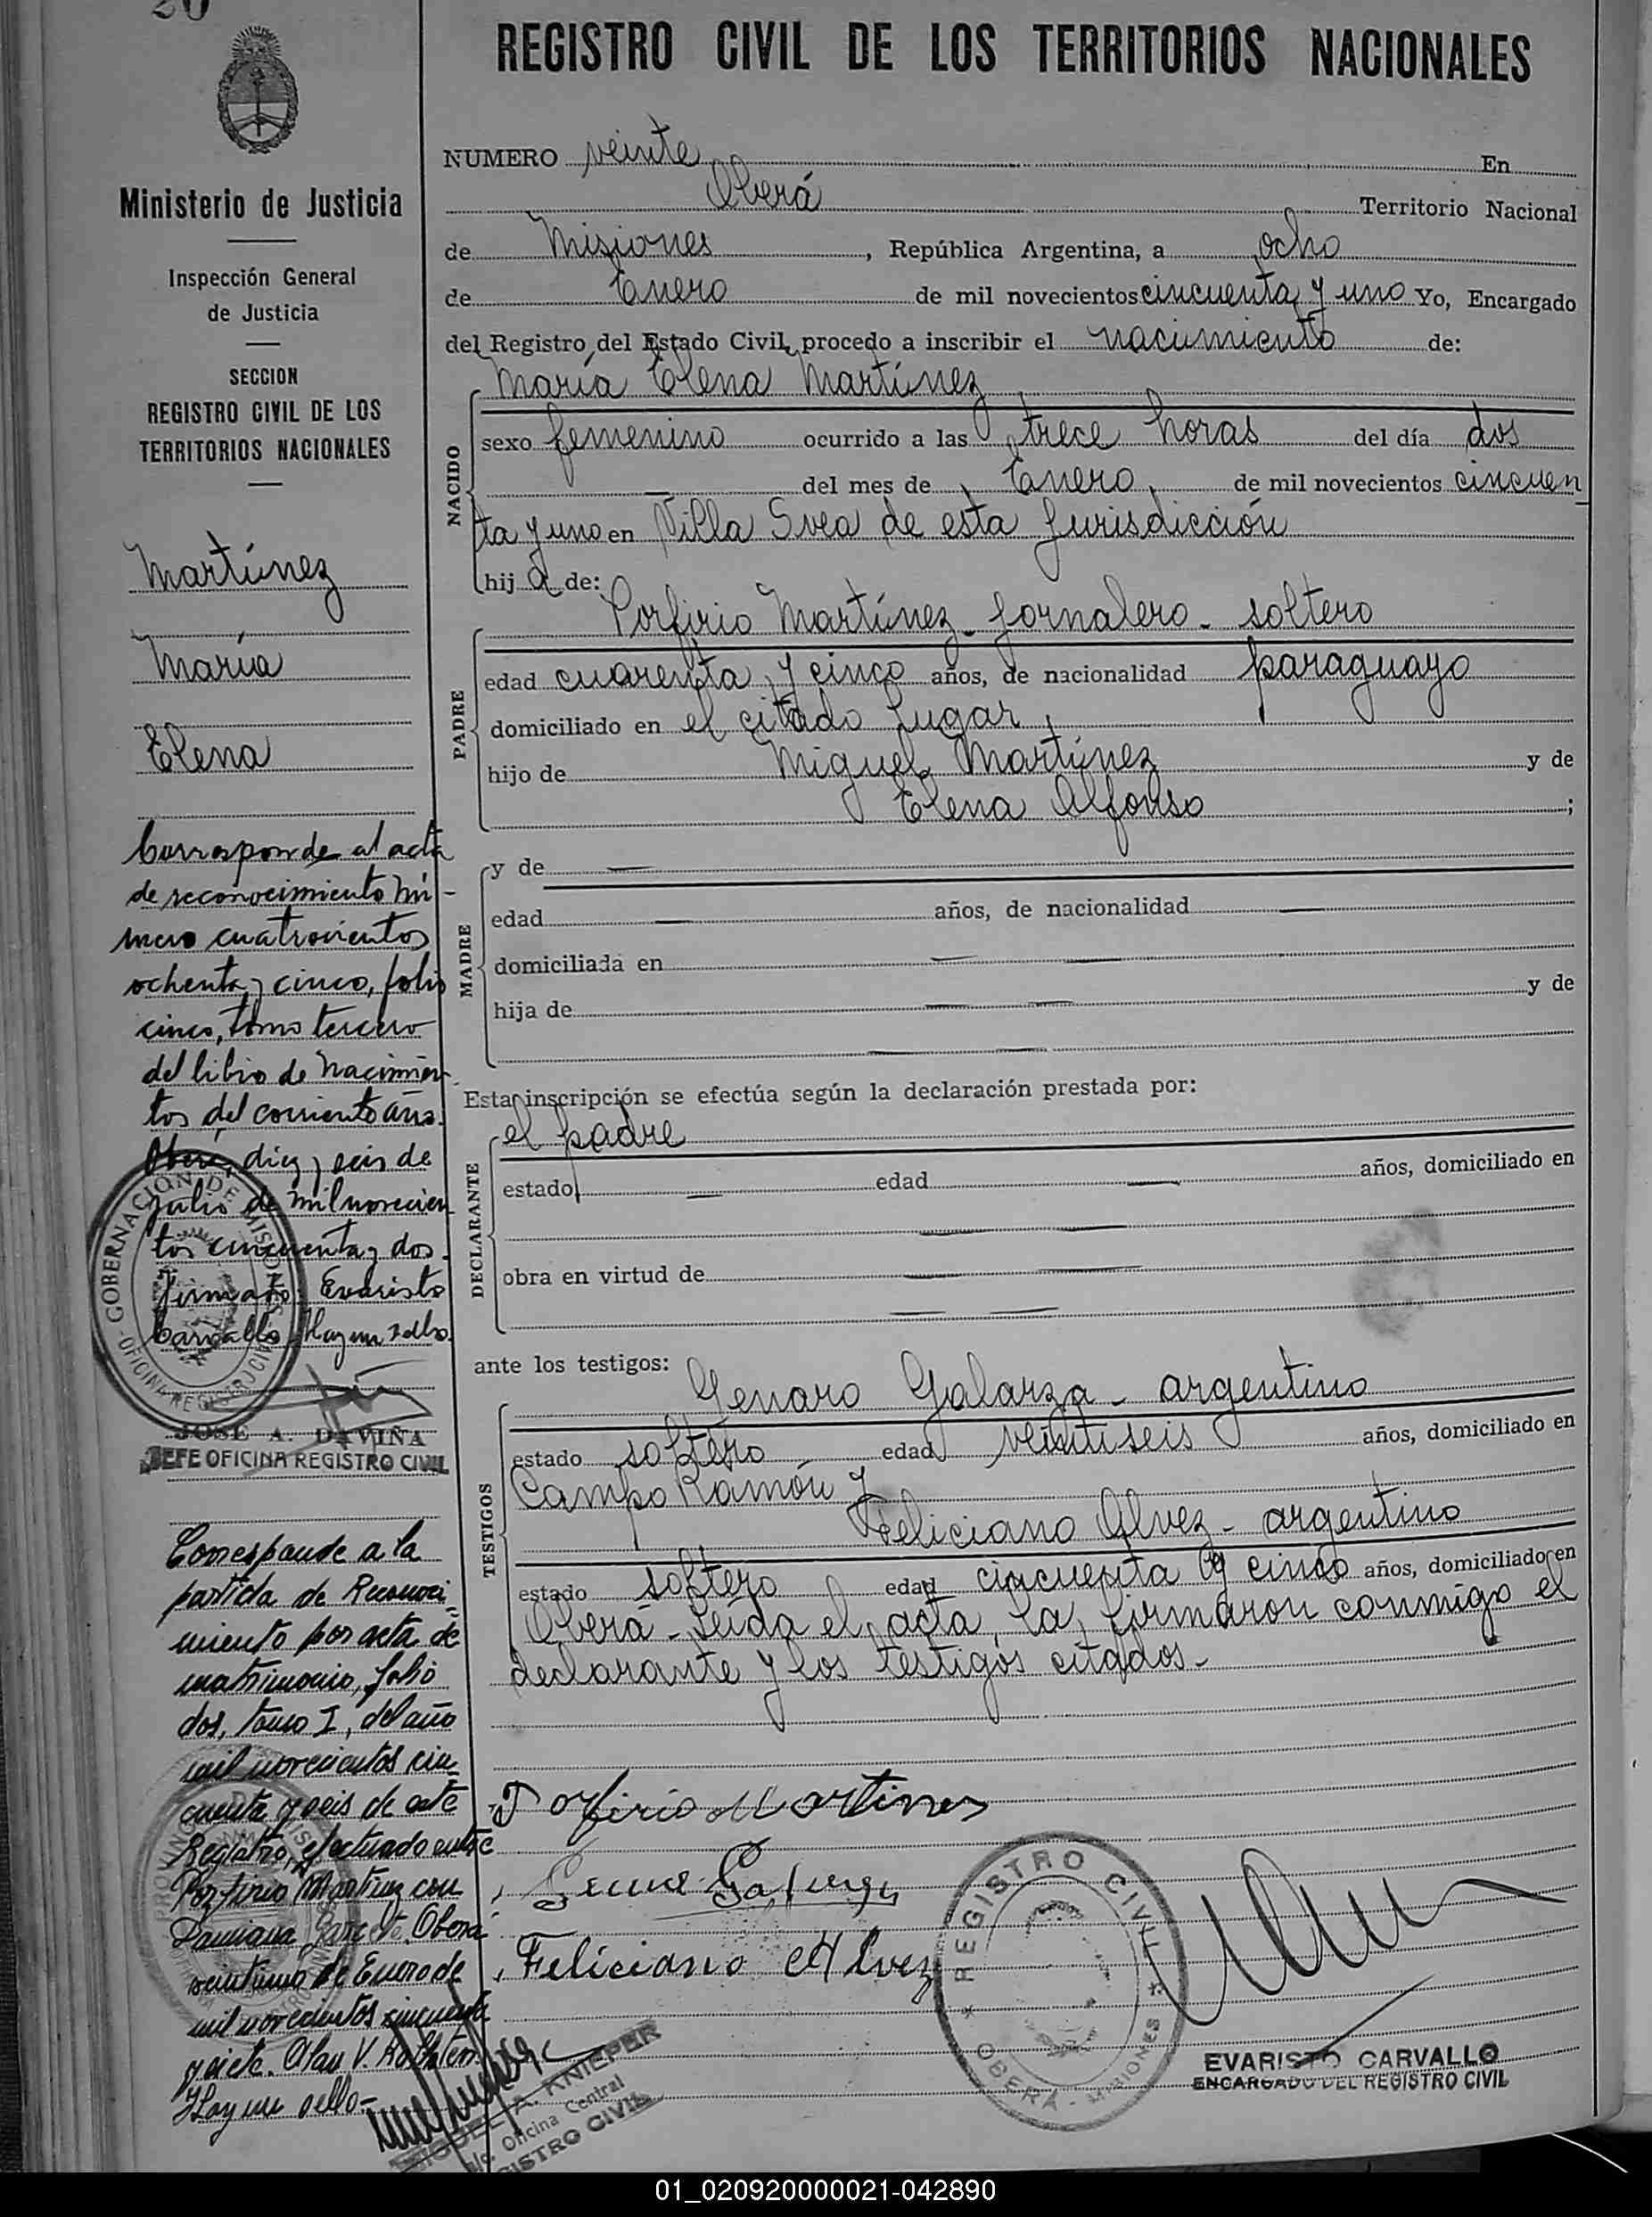 20
REGISTRO CIVIL DE LOS TERRITORIOS NACIONALES
Ministerio de Justicia
Inspección General
de Justicia
SECCION
REGISTRO CIVIL DE LOS
TERRITORIOS NACIONALES
Martínez
María
Elena
Corresponde al acta
de reconocimiento nú-
mero cuatrocientos
ochenta y cinco, folio
cinco, tomo tercero
del libro de Nacimien-
tos del corriente año.
Oberá, diez y seis de
Julio de mil novecien
tos cincuenta y dos.
Firmado: Evaristo
Carvallo. Hay un sello.
GOBERNACION DE MISIONES
OFICINA REGISTRO CIVIL
JOSE A. DAVIÑA
JEFE OFICINA REGISTRO CIVIL
Corresponde a la
partida de Reconoci
miento por acta de
matrimonio, folio
dos, tomo I, del año
mil novecientos cin
cuenta y seis de este
Registro, efectuado entre
Porfirio Martínez con
Damiana Oberá
veintiuno de Enero de
mil novecientos cincuenta
y siete. Olav V.
Hay un sello-
MIGUEL A. KNIEPER
Oficina Central
REGISTRO CIVIL
NUMERO veinte En
Oberá Territorio Nacional
de Misiones, República Argentina, a ocho
de Enero de mil novecientos cincuenta y uno Yo, Encargado
del Registro del Estado Civil, procedo a inscribir el nacimiento de:
María Elena Martínez
NACIDO
sexo femenino ocurrido a las trece horas del día dos
del mes de Enero, de mil novecientos cincuen
ta y uno en Villa Svea de esta Jurisdicción
hij a de:
PADRE
Porfirio Martínez - jornalero - soltero
edad cuarenta y cinco años, de nacionalidad paraguayo
domiciliado en el citado lugar,
hijo de Miguel Martínez y de
Elena Alfonso ;
MADRE
y de —
edad — años, de nacionalidad —
domiciliada en — —
hija de — — y de
— —
Esta inscripción se efectúa según la declaración prestada por:
DECLARANTE
el padre
estado — edad — años, domiciliado en
— —
obra en virtud de — —
— —
ante los testigos:
TESTIGOS
Genaro Galarza - argentino
estado soltero edad veintiseis años, domiciliado en
Campo Ramón y
Feliciano Alvez - argentino
estado soltero edad cincuenta y cinco años, domiciliado en
Oberá - Leída el acta, la firmaron conmigo el
declarante y los testigos citados -
Porfirio Martines
Feliciano Alvez
REGISTRO CIVIL
OBERA - MISIONES
EVARISTO CARVALLO
ENCARGADO DEL REGISTRO CIVIL
01_020920000021-042890